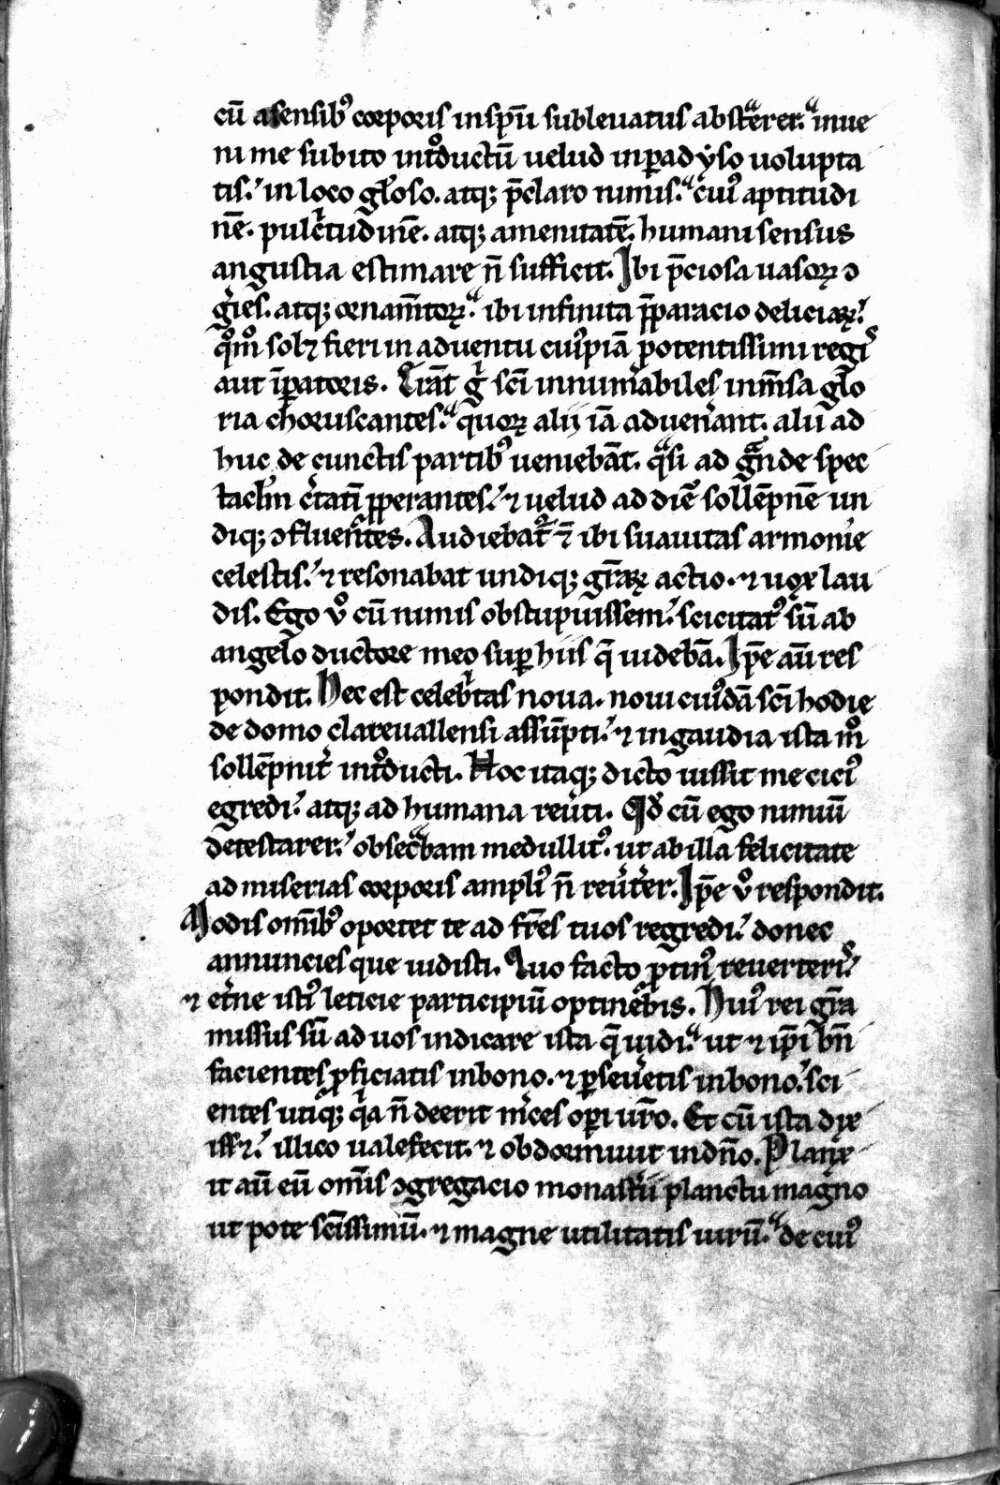 cū a sensibꝯ corporis in sp̄ū subleuatus abstͣrerer. inue
ni me subito intͦductū uelud in ꝑadẏso uolupta
tis. in loco gl̄oso. atqꝫ p̄claro nimis. cuiꝯ aptitudi
nē. pulcͥtudinē. atqꝫ amenitatē. humani sensus
angustia estimare n̄ sufficit. Ibi p̄ciosa uasoꝝ ↄ
gͥes. atqꝫ ornam̄toꝝ. ibi infinita p̄paracio deliciaꝝ.
qͦmͦ sol̄ꝫ fieri in aduentu cuiꝯpiā potentissimi regis
aut īꝑatoris. Erāt gͥ sc̄i innum̄abiles inm̄sa glo
ria choruscantes. quoꝝ alij iā aduen̄ant. alii ad
huc de cunctis partibꝯ ueniebāt. qͣsi ad gͣnde spec
tacl̄m c̄tatī ꝓperantes. ⁊ uelud ad diē sollēpnē un
diqꝫ ↄfluentes. Audiebat᷑ ⁊̄ ibi suauitas armonie
celestis. ⁊ resonabat undiqꝫ gr̄aꝝ actio. ⁊ uox lau
dis. Ego vͦ cū nimis obstupuissem. sciscitatꝯ sū ab
angelo ductore meo super hiis q̄ uidebā. Ip̄e aū res
pondit. Hec est celebͥtas noua. noui cuiꝯdā sc̄i hodie
de domo clareuallensi assūpti. ⁊ in gaudia ista mͦ
sollēpnit̄ intͦducti. Hoc itaqꝫ dicto iussit me ciciꝯ
egredi. atqꝫ ad humana reūti. Qd̄ cū ego nimiū
detestarer. obsecͣbam medullitꝯ. ut ab illa felicitate
ad miserias corporis ampliꝯ n̄ reūterer. Ip̄e vͦ respondit.
Modis om̄ibꝯ oportet te ad fr̄es tuos regredi. donec
annuncies que uidisti. Quo facto ꝓtinꝯ reuerteris.
⁊ et̄ne istiꝯ leticie participiū optinebis. Huiꝯ rei gr̄a
missus sū ad uos indicare ista q̄ uidi. ut ⁊ ip̄i bn̄
facientes ꝓficiatis in bono. ⁊ ꝑseu̇etis in bono. sci
entes utiqꝫ qͥa n̄ deerit m̄ces oꝑi ur̄o. Et cū ista dix
iss̄ꝫ. illico ualefecit. ⁊ obdormiuit in dn̄o. Planx
it aū eū om̄is ↄgregacio monast̄ii planctu magno
ut pote sc̄issimū. ⁊ magne utilitatis uirū. de cuiꝯ